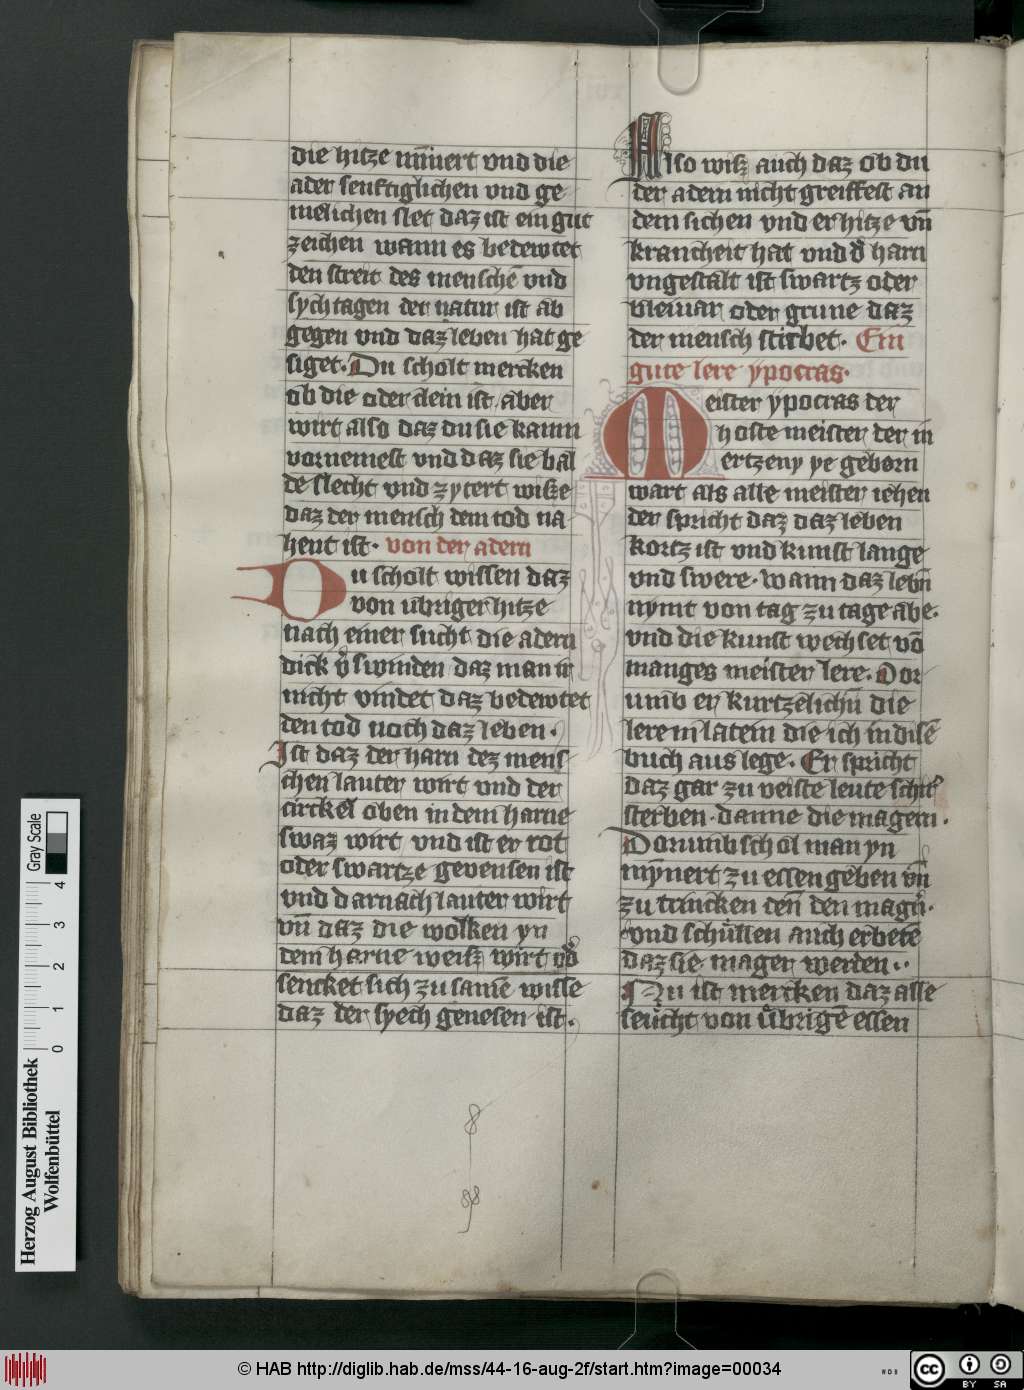 die hitze mīnert vnd die
ader senftiglichen vnd ge
melichen slet daz ist ein gut
zeichen wann es bedewtet
den streit des menschē vnd
sychtagen der natur ist ab
gegen vnd daz leben hat ge
siget. Du scholt mercken
ob die oder clein ist aber
wirt also daz du sie kaum
vornemest vnd daz sie bal
de slecht vnd zytert wisze
daz der mensch dem tod na
hent ist. von der adern
Du scholt wissen daz
von ubriger hitze
nach einer sucht die adern
dick v'swinden daz man ir
nicht vindet daz bedewtet
den tod noch daz leben.
Ist daz der harn dez mens
chen lauter wirt vnd der
cirkel oben in dem harne
swaz wirt vnd ist er rot
oder swartze gewensen ist
vnd darnach lauter wirt
vn̄ daz die wolken yn
dem harne weisz wirt vn̄
sencket sich zu samē wisse
daz der syech genesen ist.
Also wisz auch daz ob du
der adern nicht greiffest an
dem sichen vnd er hitze vn̄
krancheit hat vnd d' harn
vngestalt ist swartz oder
bleiuar oder grune daz
der mensch stirbet. Ein
gute lere ypocras.
Meister ypocras der
hoste meister der in
ertzeny ye geborn
wart als alle meister iehen
der spricht daz daz leben
kortz ist vnd kunst lange
vnd swere. wann daz lebn̄
nymt von tag zu tage abe.
vnd die kunst wechset vō
manges meister lere. Dor
umb er kurtzelichn̄ die
lere in latein die ich in disē
buch aus lege. Er spricht
daz gar zu veiste leute schir'
sterben. danne die magern.
Dorumb schol man yn
mȳnert zu essen geben vn̄
zu trincken denn̄ den mag'n.
vnd schullen auch erbeten̄
daz sie mager werden..
Nu ist mercken daz alle
seucht von übrigē essen
Gray Scale
4
3
2
1
0
Herzog August Bibliothek
Wolfenbüttel
© HAB http://diglib.hab.de/mss/44-16-aug-2f/start.htm?image=00034
cc BY SA